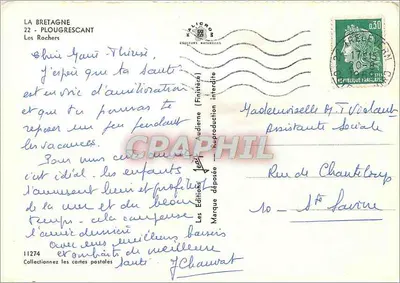 LA BRETAGNE
22 - PLOUGRESCANT
Les Rochers
Chère Marie Thérèse.
J'espère que ta santé
est en voie d'amélioration
et que tu pourras te
reposer un peu pendant
les vacances.
Pour nous
c'est idéal. les enfants
s'amusent bien et profitent
de la mer et du beau
temps. cela compense
l'année dernière
avec mes meilleurs baisers
et souhaits de meilleure
santé. J Chauvat
11274
Collectionnez les cartes postales
Les Editions Jack Audierne (Finistère)
Marque déposée - Reproduction interdite
0,30
REPUBLIQUE FRANÇAISE
Mademoiselle M.T
Assistante Sociale
Rue de Chanteloup
10 - Ste Savine
CRAPHIL